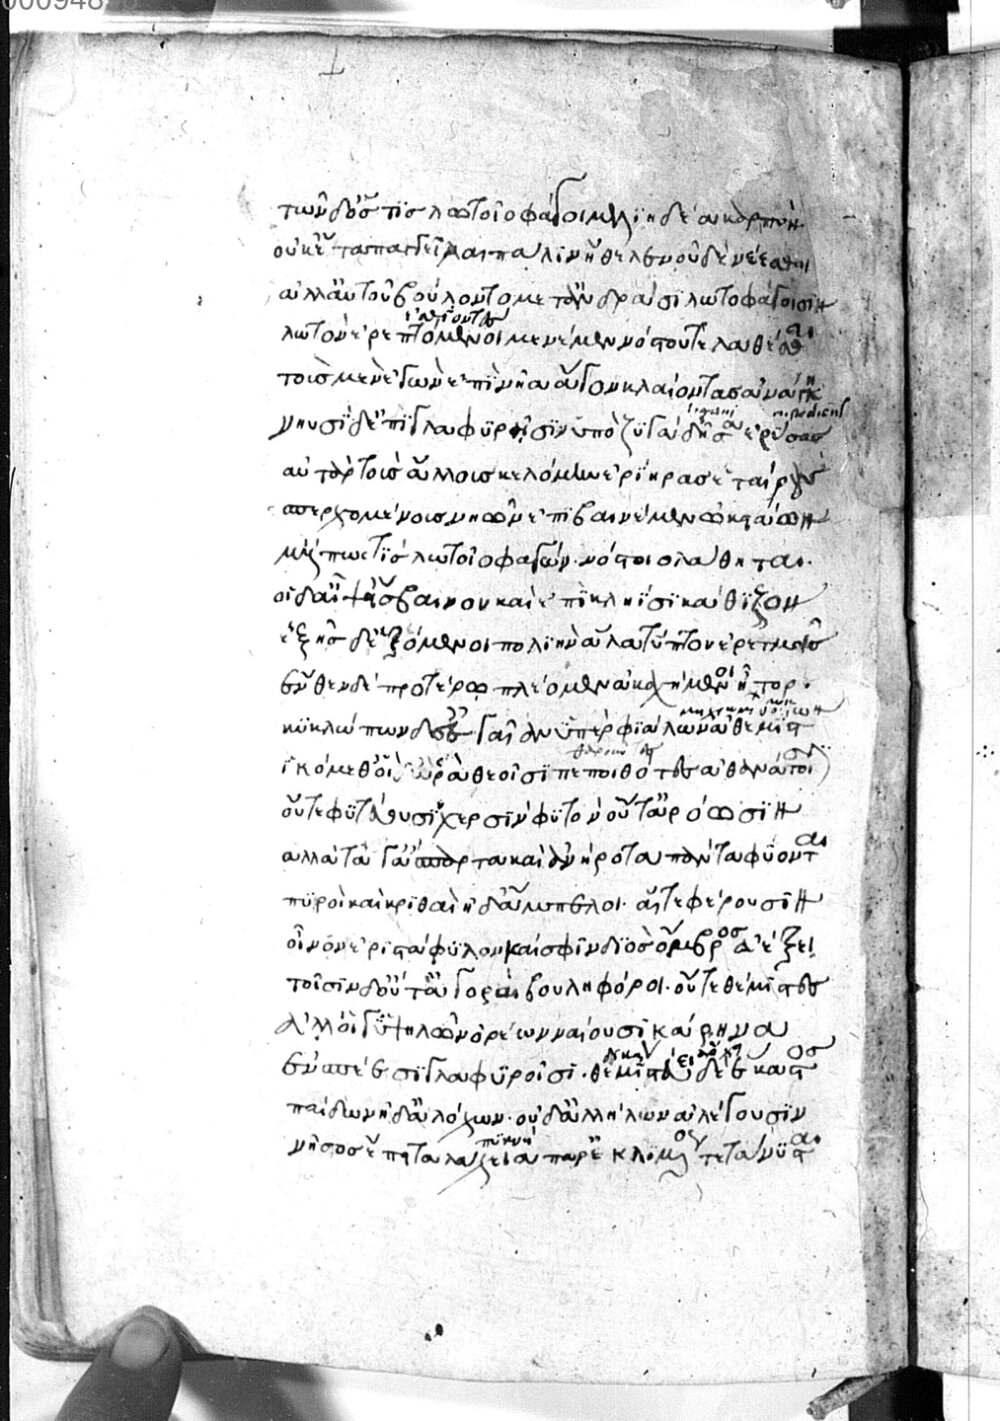 τῶν δ' ὅς τις λωτοῖο φάγοι μελιηδέα καρπὸν
οὐκἔτ' ἀπαγγεῖλαι πάλιν ἤθελεν οὐδὲ νέεσθαι
ἀλλ' αὐτοῦ βούλοντο μετ' ἀνδράσι λωτοφάγοισιν
ἐσθίοντες
λωτὸν ἐρεπτόμενοι μενέμεν νόστου τε λαθέσθαι
τοὺς μὲν ἐγὼν ἐπὶ νῆα ἄγον κλαίοντας ἀνάγκη
νηυσὶ δ' ἐπὶ γλαφυρῇσιν ὑπὸ ζυγὰ δῆσα ἐρύσας
αὐτὰρ τοὺς ἄλλους κελόμην ἐρίηρας ἑταίρους
σπερχομένοις νηῶν ἐπιβαινέμεν ὠκειάων
μή πως τίς λωτοῖο φαγών· νόστοιο λάθηται·
οἱ δ' αἶψ' εἴσβαινον καὶ ἐπὶ κληῖσι κάθιζον
ἑξῆς δ' ἑζόμενοι πολιὴν ἅλα τύπτον ἐρετμοῖς
ἔνθεν δὲ προτέρω πλέομεν ἀκαχήμενοι ἦτορ·
κυκλώπων δ' ἐς γαῖαν ὑπερφιάλων ἀθεμίστων
ἱκόμεθ' οἵ ῥα θεοῖσι πεποιθότες ἀθανάτοισι
οὔτε φυτεύουσι χερσὶν φυτὸν οὔτ' ἀρόωσιν
ἀλλὰ τά γ' ἄσπαρτα καὶ ἀνήροτα πάντα φύονται
πυροὶ καὶ κριθαὶ ἠδ' ἄμπελοι· αἵτε φέρουσιν
οἶνον ἐριστάφυλον καί σφιν διὸς ὄμβρος ἀέξει
τοῖσιν δ' οὔτ' ἀγοραὶ βουληφόροι· οὔτε θέμιστες
ἀλλ' οἵ γ' ὑψηλῶν ὀρέων ναίουσι κάρηνα
ἐν σπέεσσι γλαφυροῖσι· θεμιστεύει δὲ ἕκαστος
παίδων ἠδ' ἀλόχων· οὐδ' ἀλλήλων ἀλέγουσιν
πυκνή
νῆσος ἔπειτα λάχεια παρὲκ λιμένος τετάνυσται